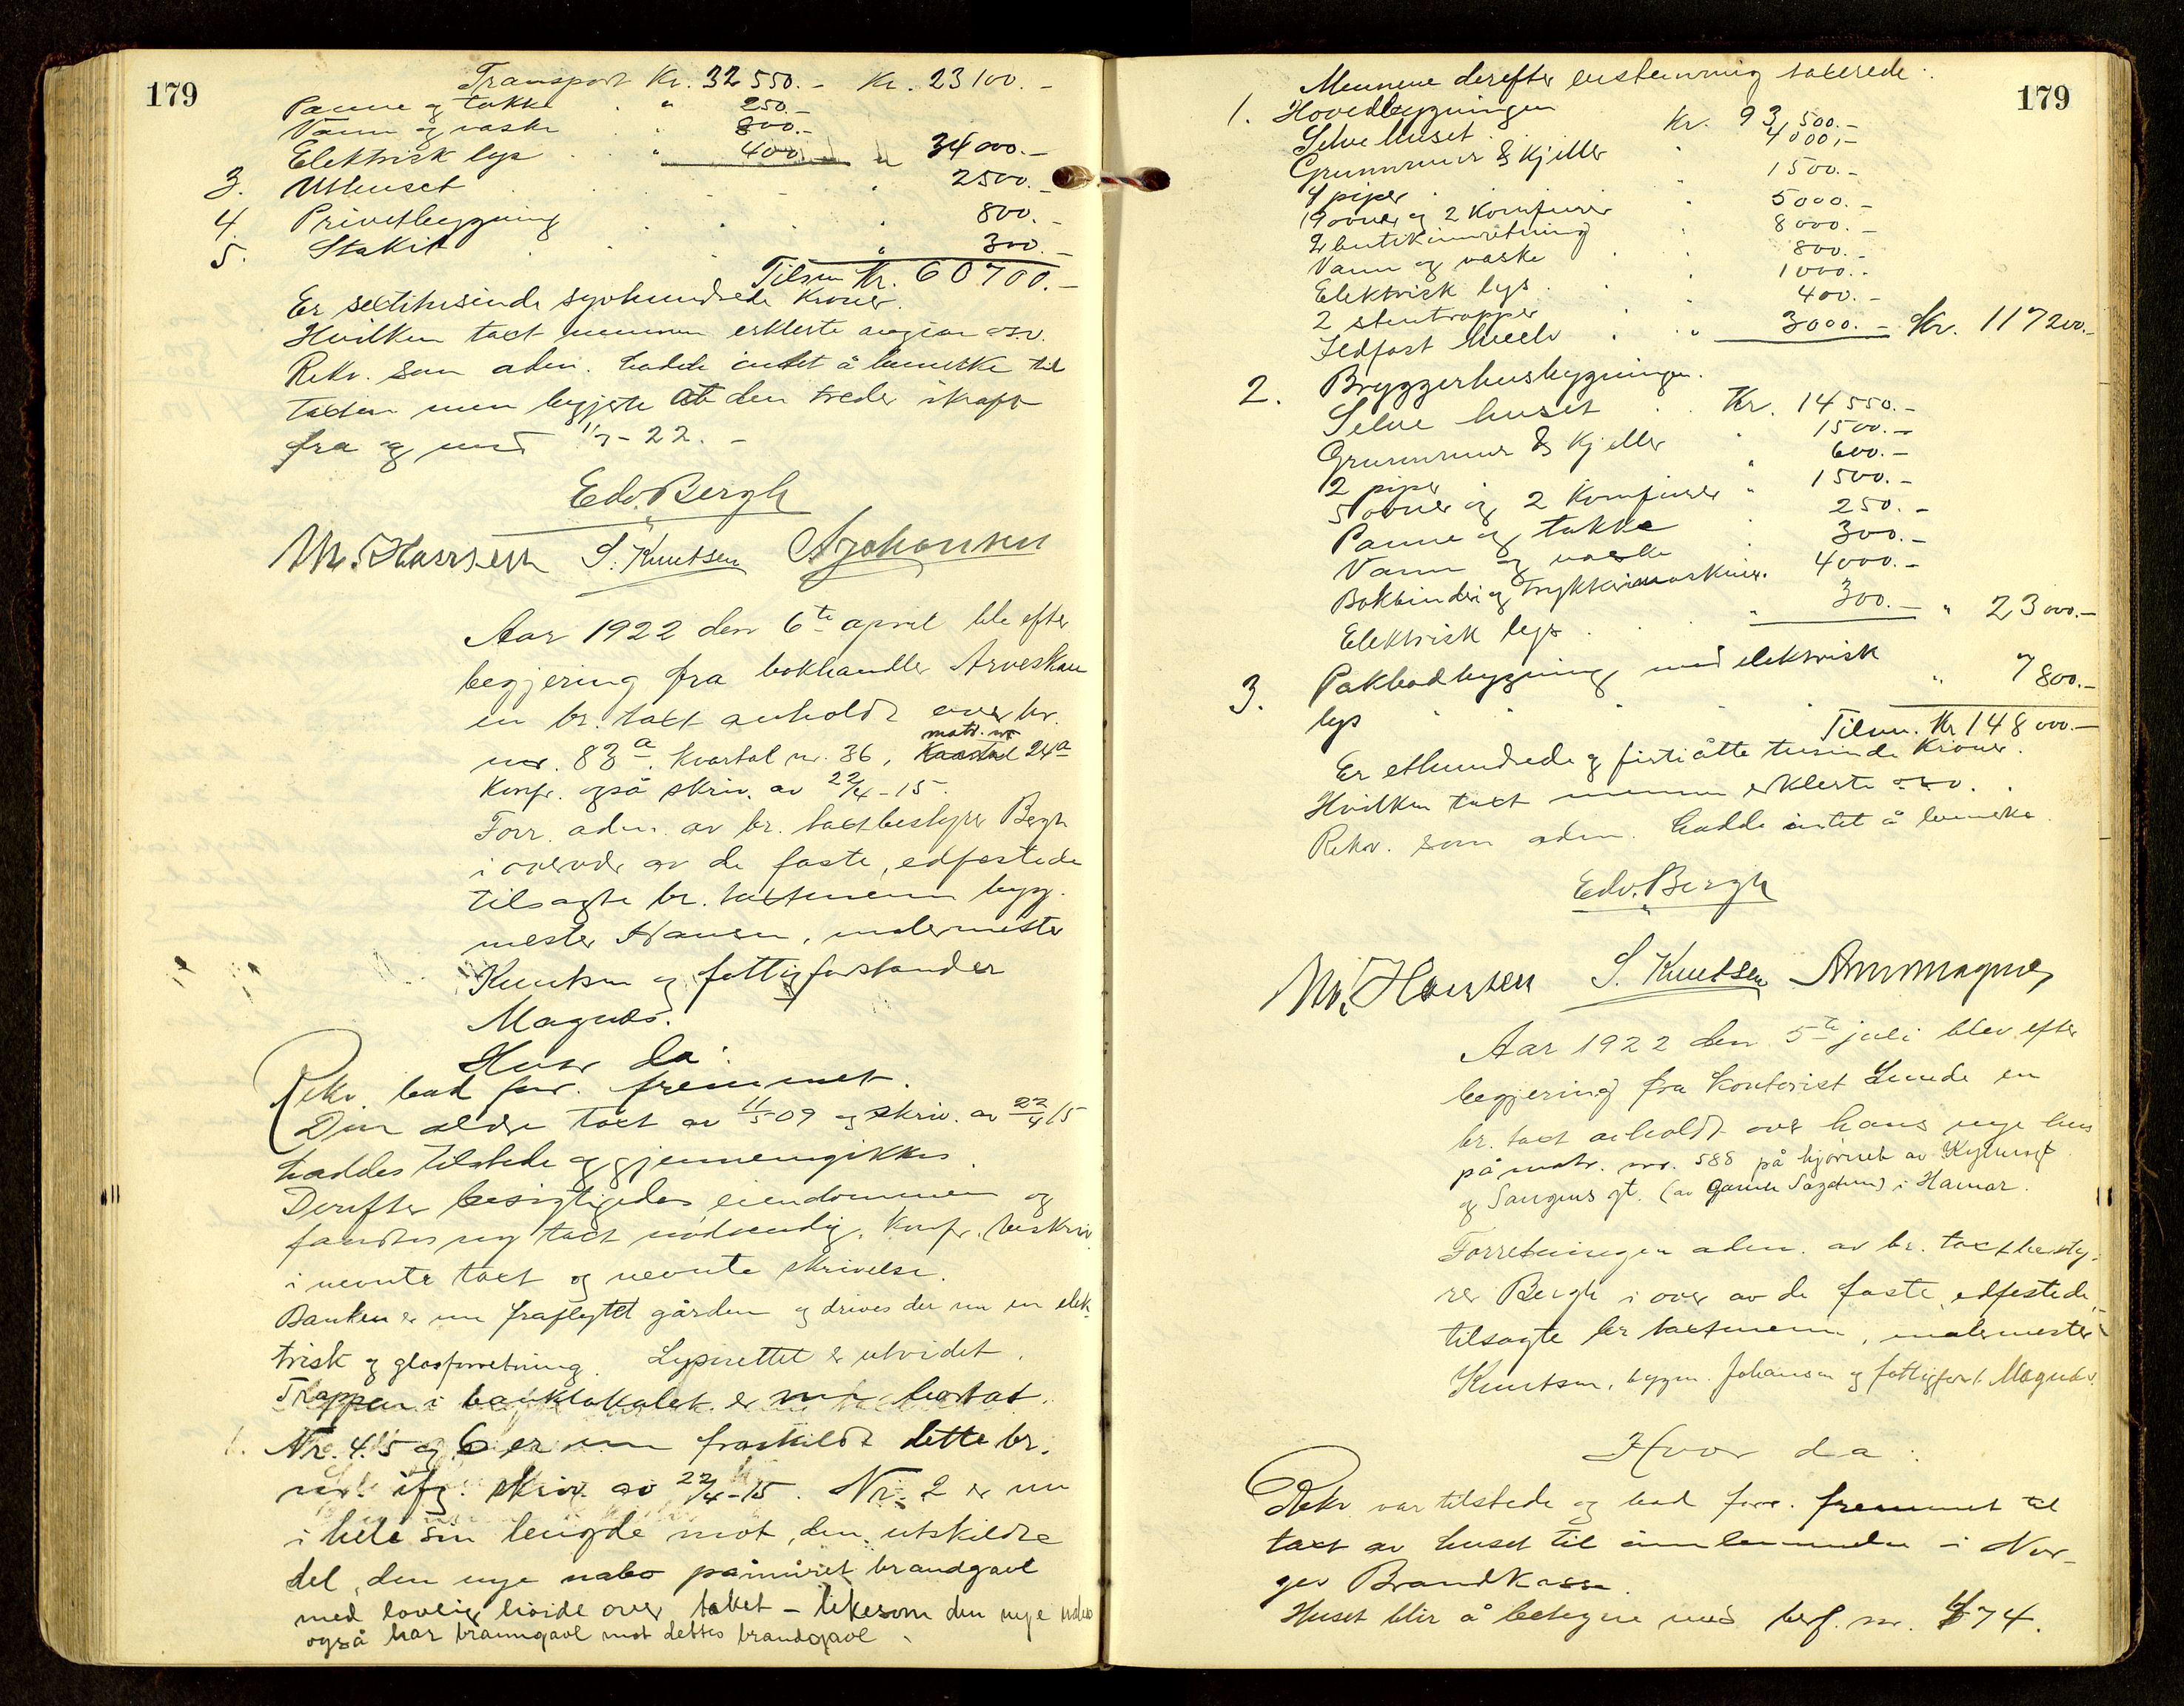 179
Transport Kr. 32550.- Kr. 23100.-
Panne og takke " 250.-
Vann og vaske " 800.-
Elektrisk lys " 400 " 34000.-
3. Uthuset " 2500.-
4. Privetbygning " 800.-
5. Stakit " 300.-
Tilsm Kr. 60700.-
Er sextitusinde syvhundrede Kroner.
Hvilken taxt mennene erklerte angivn o.s.v.
Rekv. som aden. hadde intet å bemerke til
taxten men begjerte at den treder ikraft
fra og med 1/7-22.-
Edv. Bergh
M. Hansen S. Knutsen A Johansen
Aar 1922 den 6te april ble efter
begjering fra bokhandler Arveskau
en br. taxt avholdt over br.
matr. nr
nr. 83a. Kvartal nr. 36, Kvartal 24a
Konfr. også skriv. av 22/4-15.
Forr. adm. av br. taxtbestyrer Bergh
i overvær av de faste, edfestede
tilsagte br. taxtmenn bygg-
mester Hansen, malermester
Knutsen og fattigforstander
Magnæs.
Hvor da:
Rekv. bad forr. fremmet.
Den eldre taxt av 11/5 09 og skriv. av 22/4 15
haddes tilstede og gjennemgikkes.
Derefter besigtigedes eiendommen og
fandtes ny taxt nødvendig. Konfr. beskriv.
i nevnte taxt og nevnte skrivelse.
Banken er nu fraflyttet gården og drives der nu en elek-
trisk og glasforretning. Lysnettet er utvidet.
Trappen i banklokalet er nu borttat.
1. Nr. 4.5 og 6 er nu fraskildt dette br.
nr. ifg. skriv. av 22/4-15. Nr. 2 er nu
i hele sin lengde mot den utskildte
del, den nye nabo påmuret brandgavl
med lovlig høide over taket - likesom den nye nabo
også har branngavl mot dettes brandgavl.
179
Mennene derefter enstemmig taxerede:
1. Hovedbygningen
Selve huset Kr. 93,500.-
Grunnmur & Kjeller " 4000,-
4 piper " 1500.-
19 ovner og 2 Komfurer " 5000.-
2 butikinnretning " 8000.-
Vann og vaske 800.-
Elektrisk lys " 1000.-
2 stentrapper " 400.-
Ildfast hvelv " 3000.- Kr. 117200.-
2. Bryggerhusbygningen.
Selve huset Kr. 14550.-
Grunnmur & Kjeller " 1500.-
2 piper " 600.-
5 ovner og 2 Komfurer " 1500.-
Panne og takke 250.-
Vann og vaske 300.-
Bokbinderi og Trykkerimaskiner. 4000.-
Elektrisk lys " 300.- " 23000.-
3. Pakbodbygning med elektrisk
lys " 7800.-
Tilsm. Kr 148000.-
Er ethundrede og førtiåtte tusinde Kroner.
Hvilken taxt mennene erklerte o.s.v.
Rekv. som aden. hadde intet å bemerke.
Edv. Bergh
M. Hansen S. Knutsen Am Magnæs
Aar 1922 den 5te juli blev efter
begjering fra Kontorist Lunde en
br. taxt avholdt over hans nye hus
på matr. nr. 588 på hjørnet av
og gt. (av i Hamar.
Forretningen adm. av br. taxtbesty-
rer Bergh i over av de faste, edfestede,
tilsagte br taxtmenn, malermester
Knutsen, byggm. Johansen og fattigforst. Magnæs.
Hvor da:
Rekv var tilstede og bad forr. fremmet til
taxt av huset til innlemmelse i Nor-
ges Brandkasse.
Huset blir å betegne med berf. nr. 674.